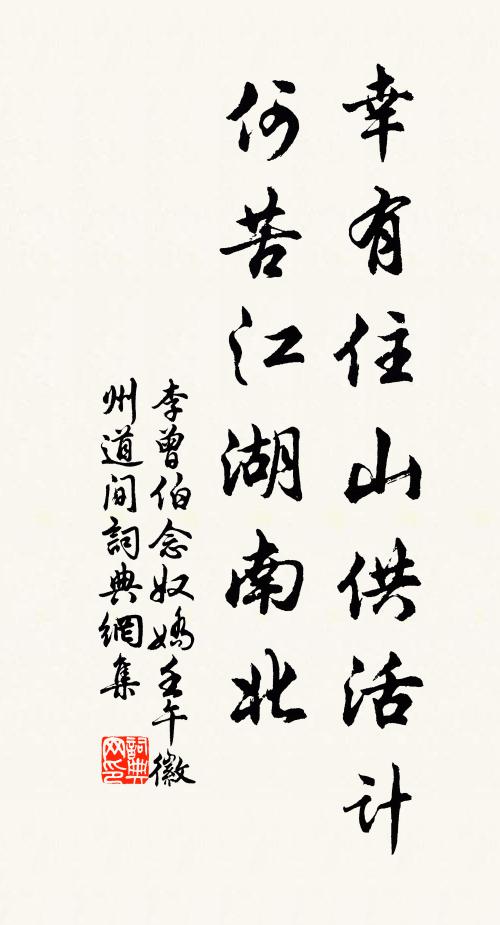 幸有住山供活计
何苦江湖南北
李曾伯念奴嬌壬午徽
州道间詞典網集
詞典网印